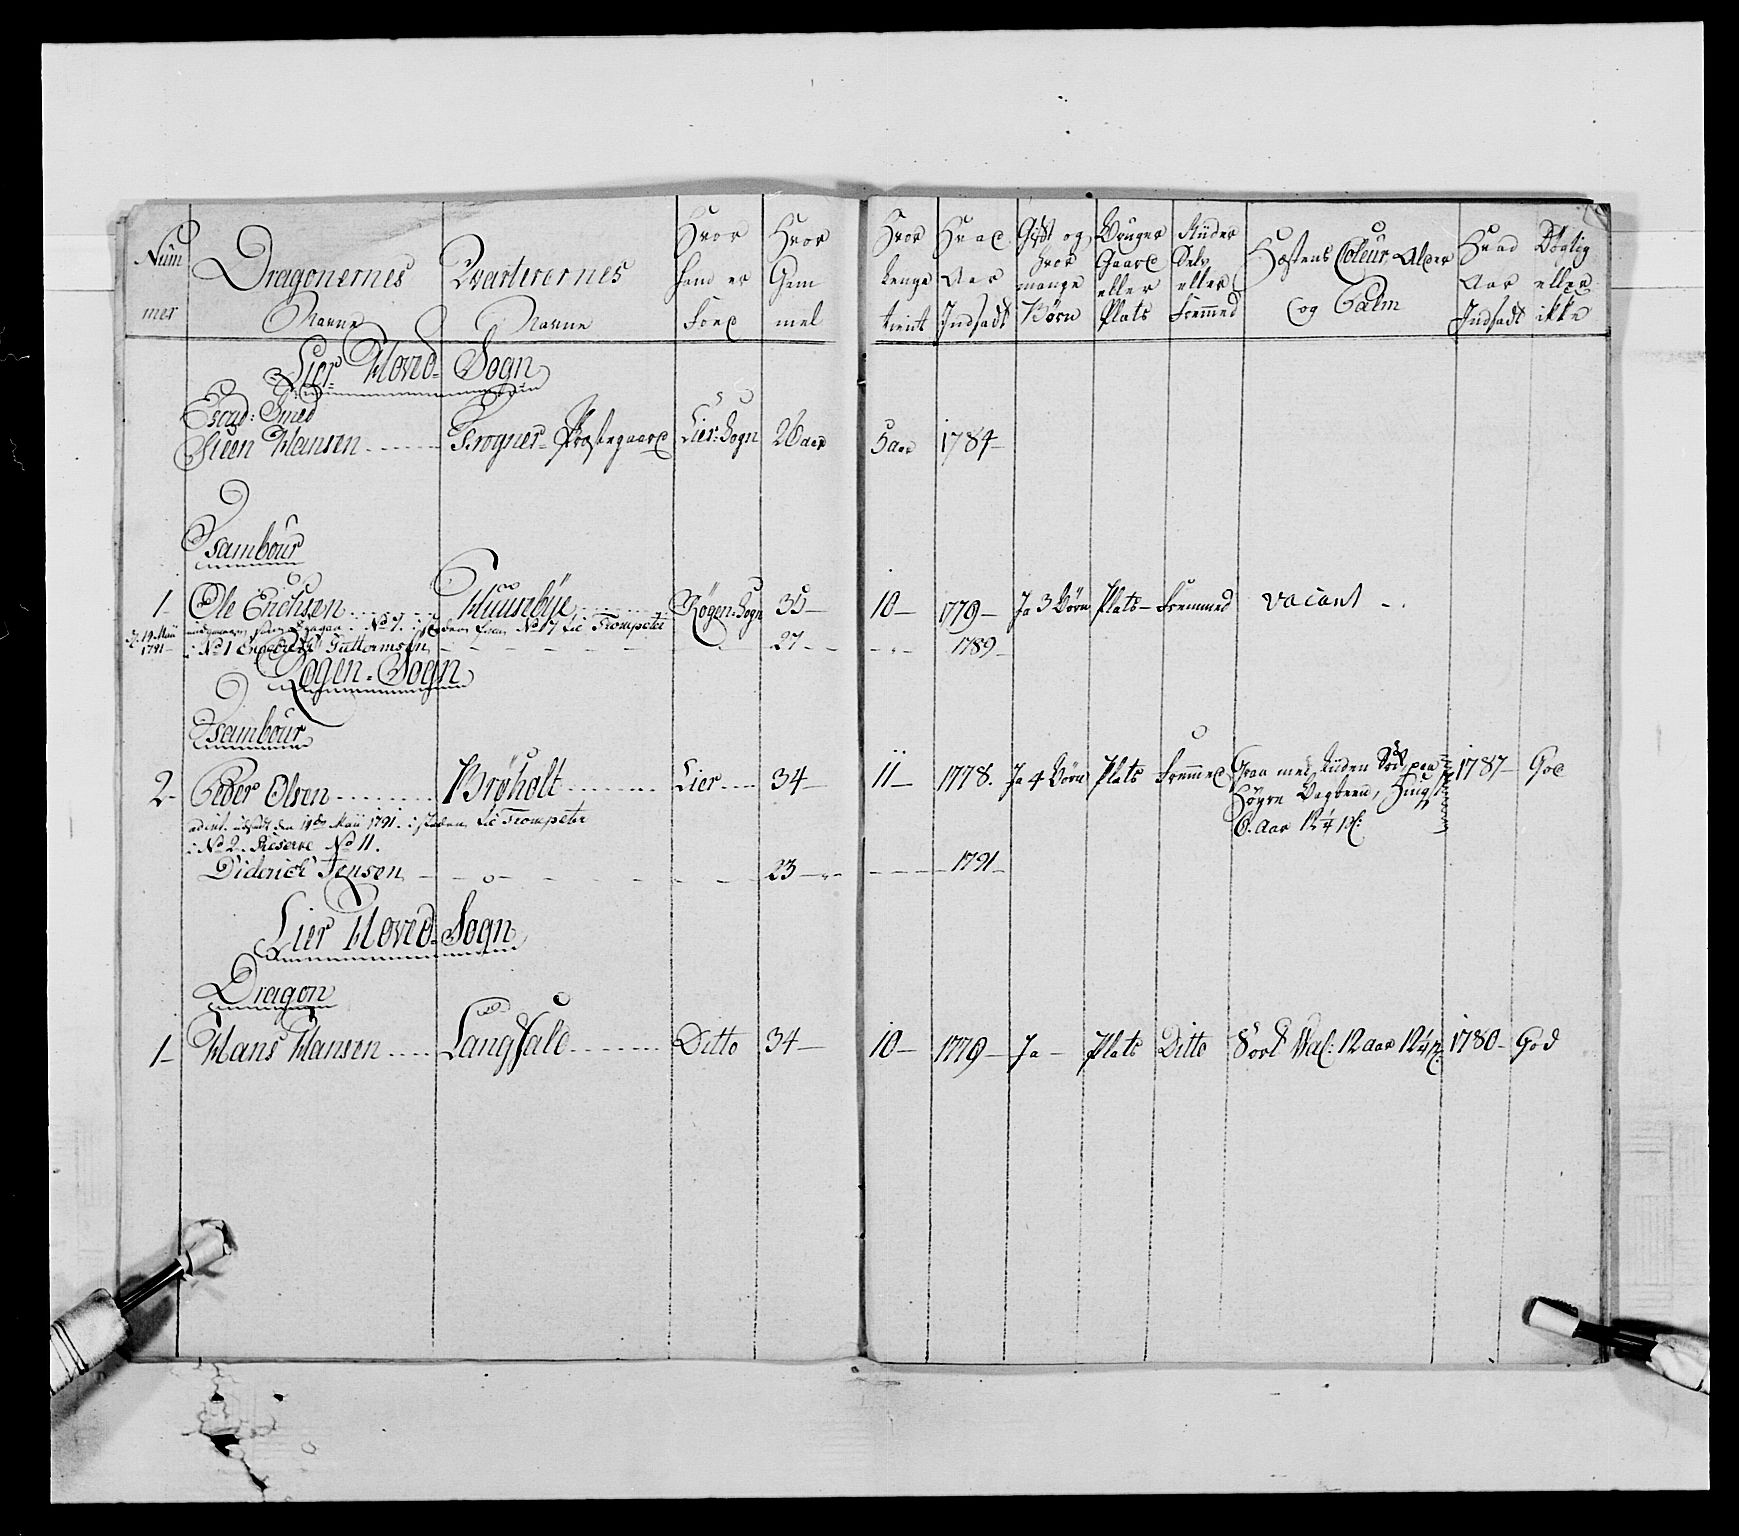 Num mer
Dragonernes Navne
Qvarterernes Navne
Hvor hand er Fød
Hvor Gam mel
Hvor lenge tient
Hvad Aar Indsadt
Gift og hvor mange Børn
Bruger Gaard eller Plats
Riider Selv eller Fremmed
Hæstens Coleur, Alder og Talm
Hvad Aar Indsadt
Dygtig eller ikke
Lier Hoved Sogn
Escad: Smed
Steen Hansen Frogner Præstegaard Lier: Sogn 26 aar 5 aar 1784
Tambour
1 Ole Erichsen Huusbye Røgen Sogn 35 10 1779 Ja 3 Børn Plats Fremmed vacant
d. 19 Maii 1791 No 7. No 17 til Trompeter
No 1 Engebret Guttormsen 27 1789
Røgen Sogn
Tambour
2 Peder Olsen Brøholt Lier 34 11 1778. Ja 4 Børn Plats Fremmed Graa med paa 1787 God
Høyre Hingst
6 Aar 12 1/4
udsadt den 19de Maii 1791. i steden til Trompeter
No 2. Reserve No 11.
Diderich Jensen 23 1791
Lier Hoved Sogn
Dragon
1 Hans Hansen Langfald Ditto 34 10 1779 Ja Plats Ditto Sort Wal: 12 aar 12 1/4 1780 God